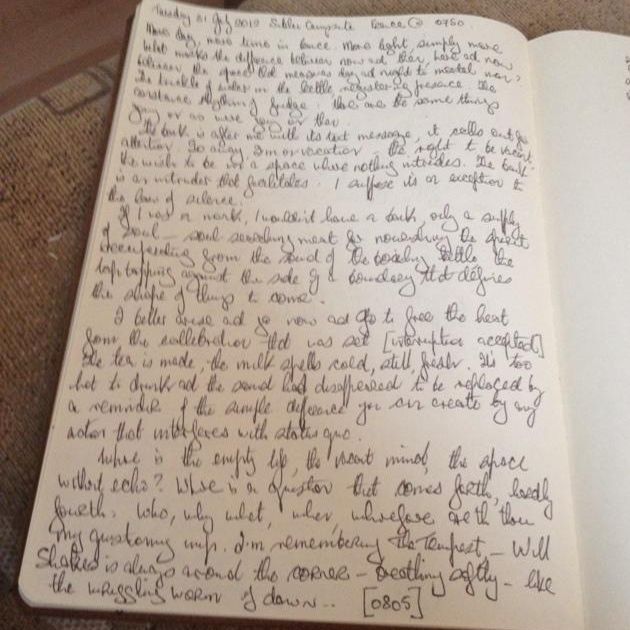 Tuesday 31 July 2012 France @ 0750.
More day, more time in France. More light, simply more
what marks the difference between now and then, here and now
between the space that measures day and night to mental
The trickle of water in the kettle registering presence. The
constance rhythm of fridge. these are the same things
The bank is after me with its text message, it calls out for
attention. To say I'm on vacation – the right to be vacant
the wish to be in a space where nothing intrudes. The bank
is an intruder that facilitates. I suppose its an exception to
the law of silence.
If I was a monk, I wouldn't have a bank, only a supply
of soul – soul searching meant for nourishing the spirit
from the sound of the boiling kettle the
tap tapping against the side of a boundary that defines
the shape of things to come.
I better arise and go now and go to free the heat
from the that was set [interruption accepted]
The tea is made, the milk spells cold, still, fresh. It's too
hot to drink and the sound has disappeared to be replaced by
a reminder of the simple difference you can create by any
action that interferes with status quo.
where is the empty life, the vacant mind, the space
without echo? Where is a question that comes forth, hardly
fourth. Who, why what, when, wherefore art thou
my questioning imp. I'm remembering the Tempest – Will
Shakes is always around the corner – breathing softly – like
the wriggling worm of dawn... [0805]